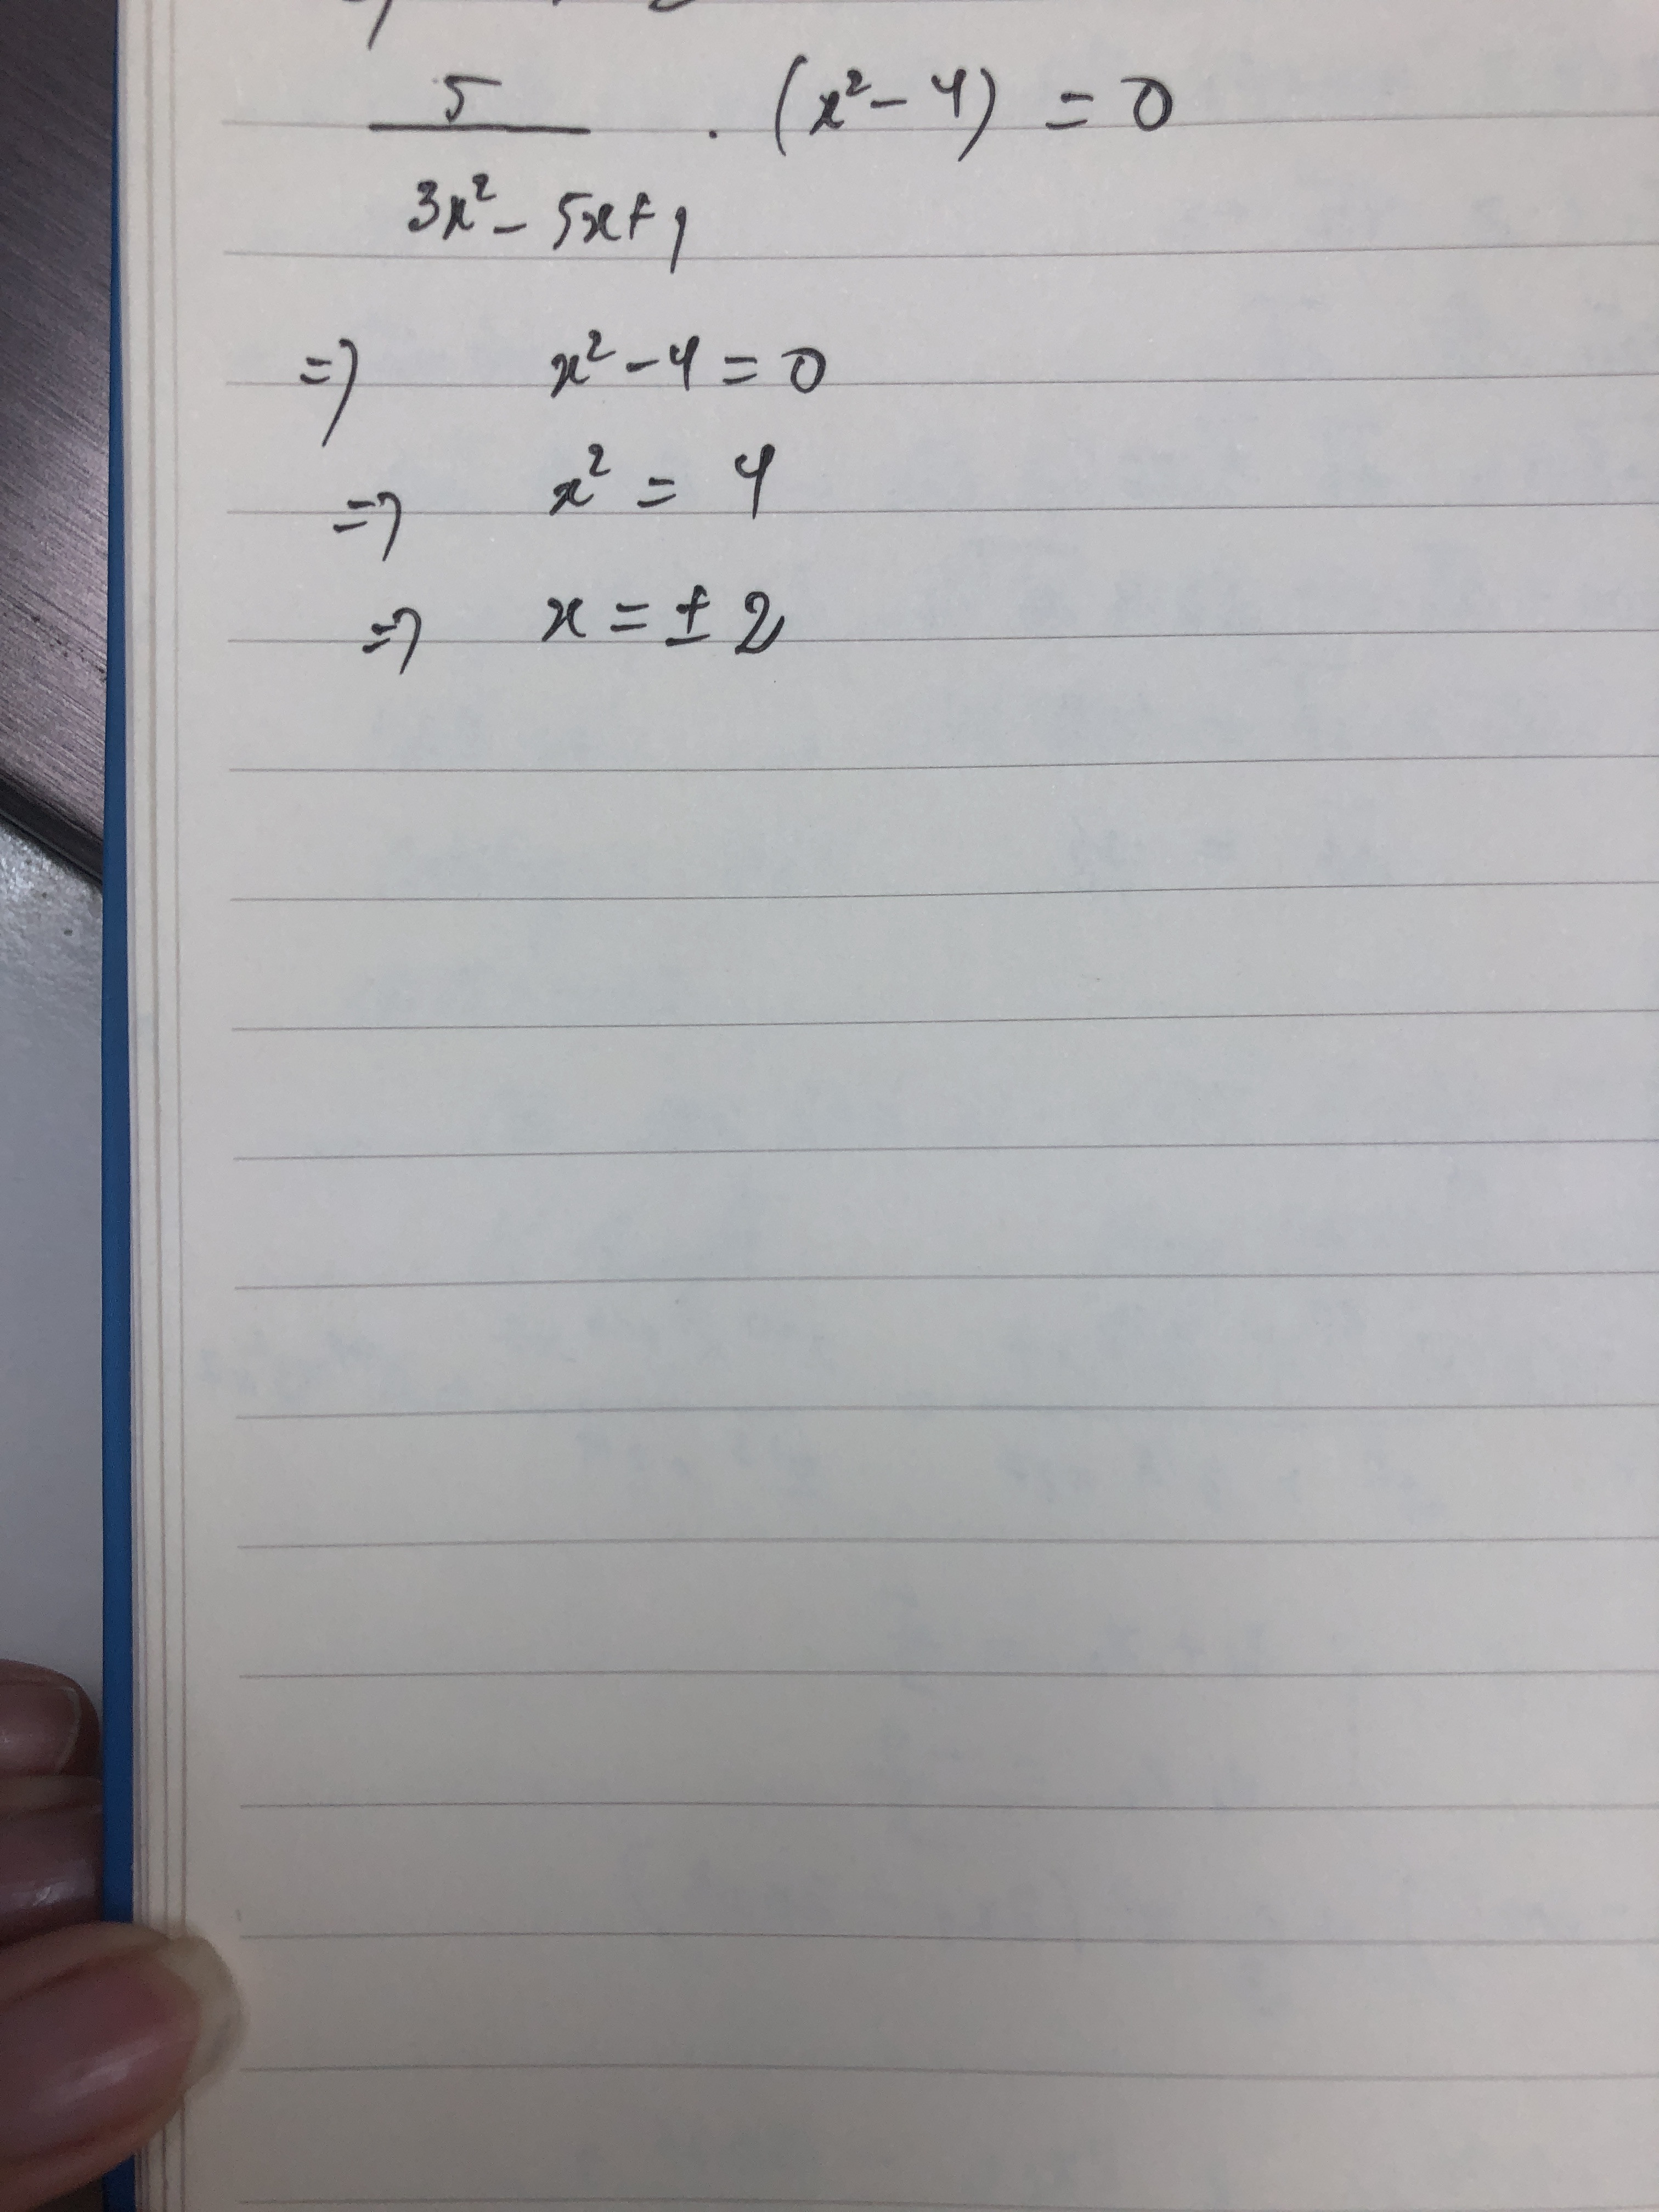 5/(3x² - 5x + 1) . (x² - 4) = 0
=> x² - 4 = 0
=> x² = 4
=> x = ± 2